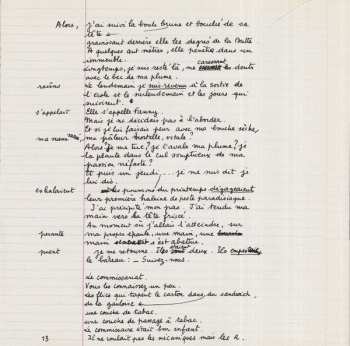 Alors, j'ai suivi la boule brune et bouclée de sa
tête
gravissant derrière elle les degrés de la Butte
A quelques aut mètres, elle pénétra dans un
immeuble.
Longtemps, je suis resté là, me caressant les dents
avec le bec de ma plume.
Le lendemain je suis revenu à la sortie de
l'école et le surlendemain et les jours qui
suivirent.
s'appelait Elle s'appelle Fanny.
Mais je ne décidais pas à l'aborder
Et si je lui faisais peur avec ma bouche sèche,
ma sueur ma pâleur mortelle,
Alors je me tue? je l'avale ma plume? je
la plante dans le cul somptueux de ma
passion néfaste?
Et puis un jeudi, je ne sus dit je
lui dis.
exhalaient les poumons du printemps dégageaient
leur première haleine de peste paradisiaque.
J'ai précipité mon pas. J'ai tendu ma
main vers la tête frisée.
Au moment où j'allais l'atteindre, sur
pesante ma propre épaule, une main, une
main s'est abattue.
Je me retourne. Ils sont deux. Ils
le bateau: — Suivez-nous.
Le commissariat.
Vous les connaissez un peu.
Les flics qui tapent le carton dans du sandwich.
de la gauloise
une couche de tabac.
une couche de passage à tabac.
Le commissaire était bon enfant.
13 Il ne roulait pas les mécaniques mais les R.